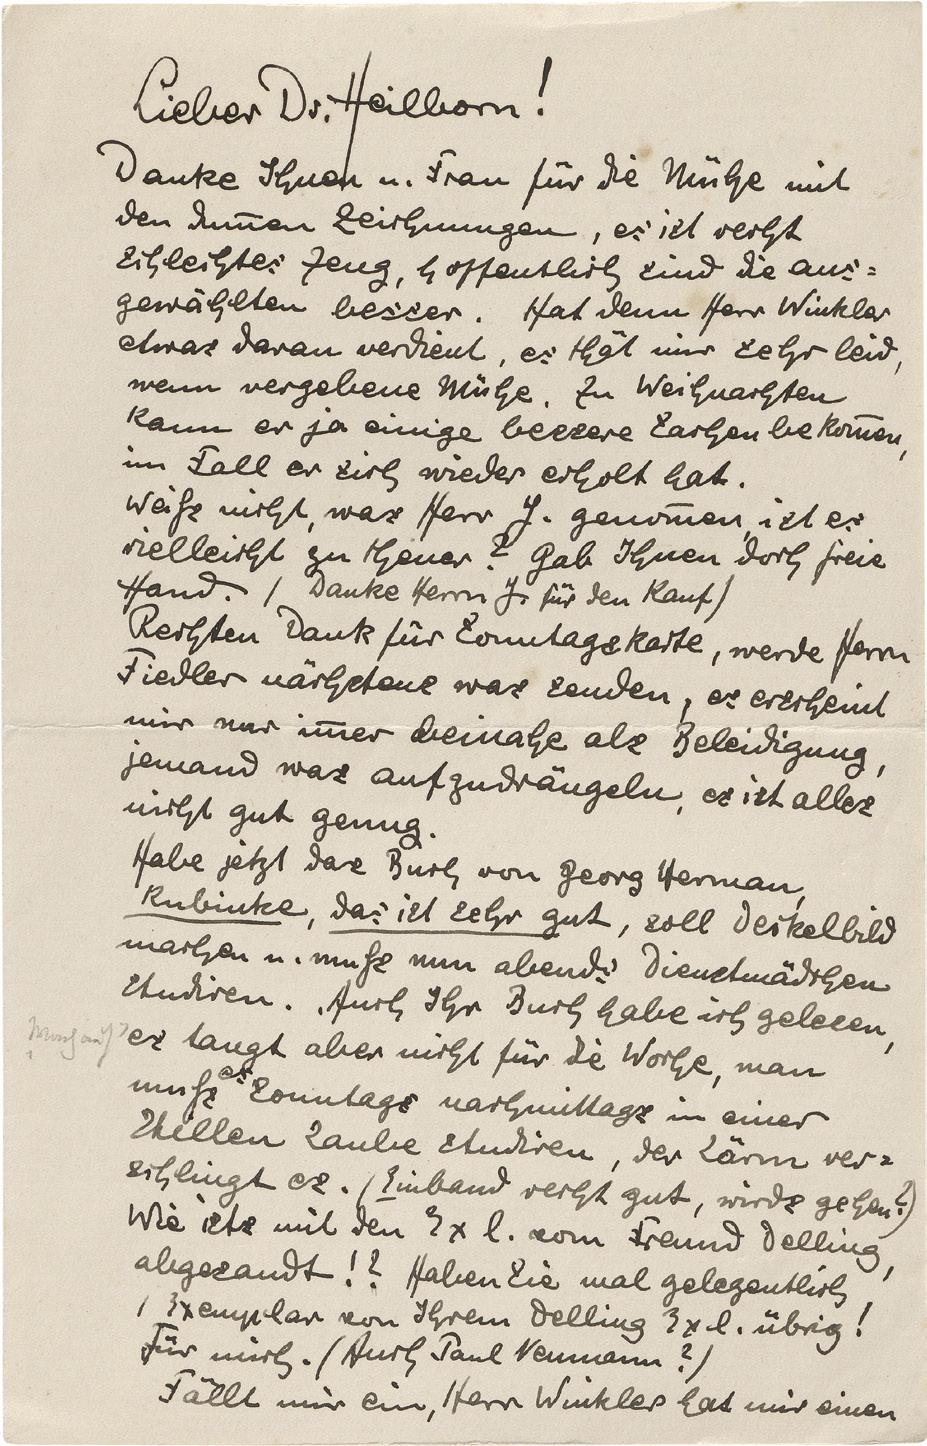 Lieber Dr. Heilborn!
Danke Ihnen u. Frau für die Mühe mit
den dum̄en Zeichnungen, es ist recht
schlechtes Zeug, hoffentlich sind die aus=
gewählten besser. Hat denn Herr Winkler
etwas daran verdient, es thät mir sehr leid,
wenn vergebene Mühe. Zu Weihnachten
kann er ja einige bessere Sachen bekom̄en,
im Fall er sich wieder erholt hat.
Weiß nicht, was Herr J. genom̄en, ist es
vielleicht zu theuer? Gab Ihnen doch freie
Hand. / Danke Herrn J. für den Kauf/
Rechten Dank für Sonntagskarte, werde Herrn
Fiedler nächstens was senden, es erscheint
mir nur im̄er beinahe als Beleidigung,
jemand was aufzudrängeln, es ist alles
nicht gut genug.
Habe jetzt das Buch von Georg Herman,
Kubinke, das ist sehr gut, soll Deckelbild
machen u. muß nun abends Dienstmädchen
studiren. Auch Ihr Buch habe ich gelesen,
es taugt aber nicht für die Woche, man
muß es Sonntags nachmittags in einer
stillen Laube studiren, der Lärm ver=
schlingt es. (Einband recht gut, wirds gehen?)
Wie ists mit den Ex l. vom Freund Delling,
abgesandt!? Haben Sie mal gelegentlich
1 Exemplar von Ihrem Delling Ex l. übrig!
Für mich. (Auch Paul Neumann?)
Fällt mir ein, Herr Winkler hat mir einen